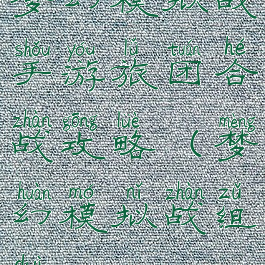 shǒu yóu lǚ tuán hé
手游旅团合
zhàn gōng lüè mèng
战攻略（梦
huàn mó nǐ zhàn zǔ
幻模拟战组